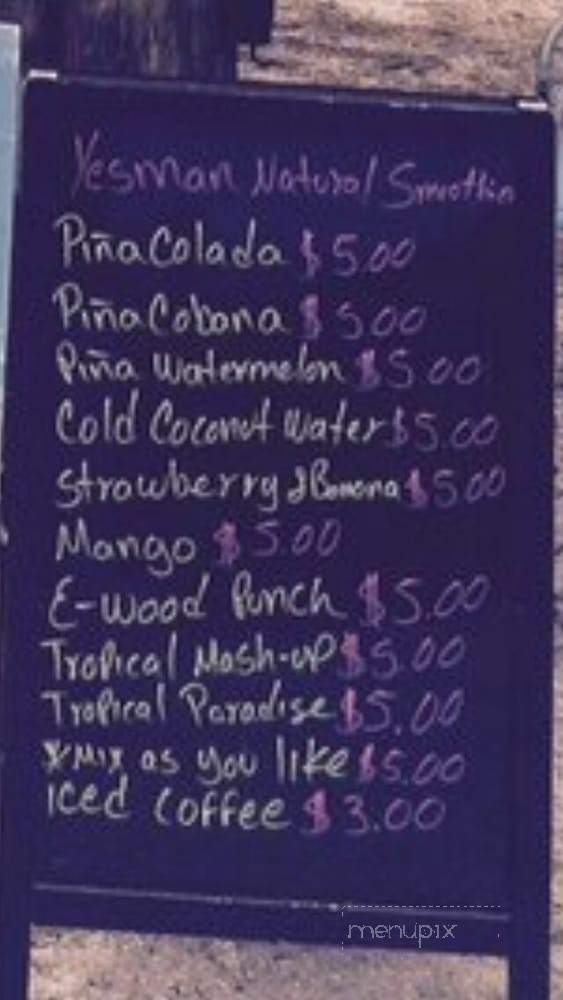 Yesman Natural Smoothie
Piña Colada $5.00
Piña Cobana $5.00
Piña Watermelon $5.00
Cold Coconut Water $5.00
Strawberry & Banana $5.00
Mango $5.00
E-wood Punch $5.00
Tropical Mash-up $5.00
Tropical Paradise $5.00
*Mix as you like $5.00
Iced Coffee $3.00
menupix